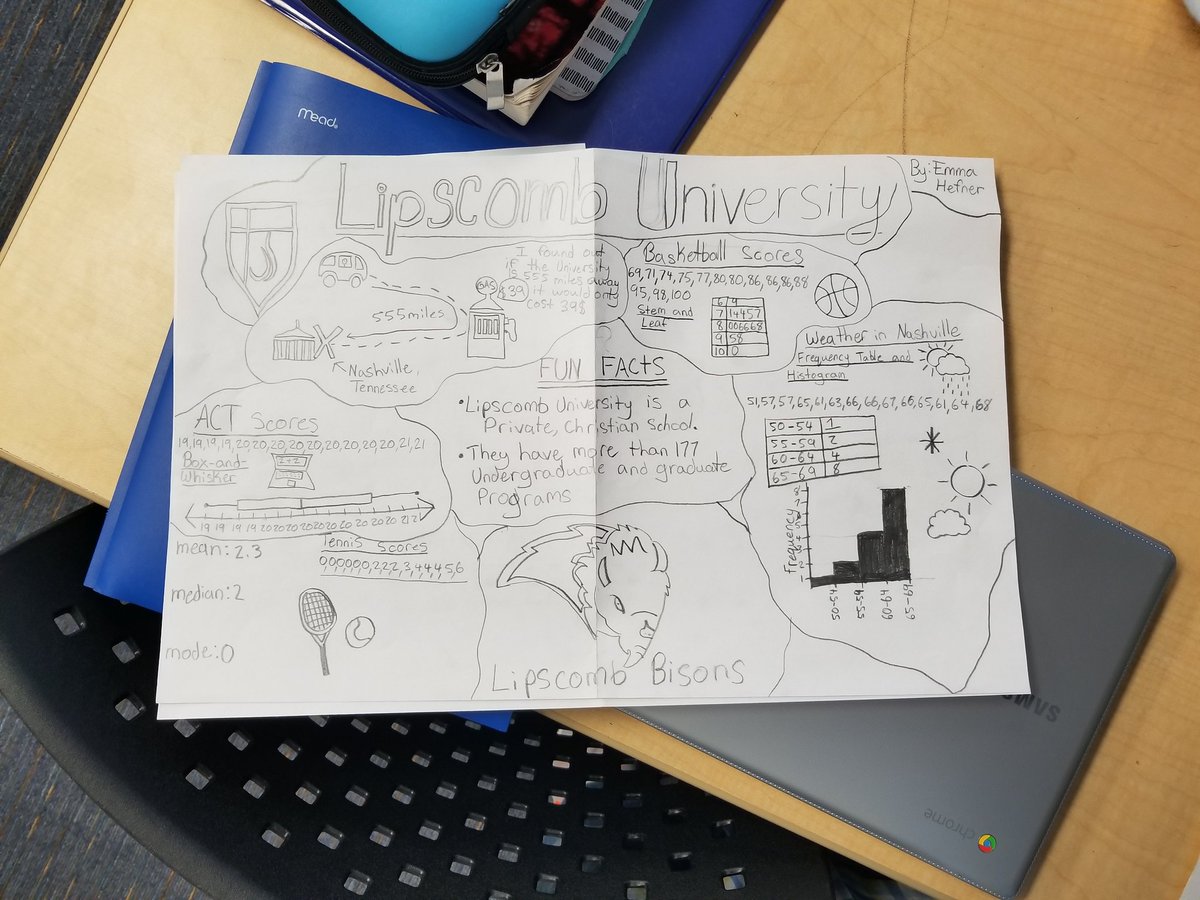 mead
Lipscomb University
By: Emma
Hefner
I found out
if the University
is 555 miles away
it would only
cost 39$
GAS
$39
555 miles
Nashville,
Tennessee
Basketball Scores
69,71,74,75,77,80,80,86,86,86,88
95,98,100
Stem and
Leaf
6 9
7 14457
8 006668
9 58
10 0
Weather in Nashville
Frequency Table and
Histogram
51,57,57,65,61,63,66,66,67,66,65,61,64,68
50-54 1
55-59 2
60-64 4
65-69 8
Frequency
50-54
55-59
60-64
65-69
FUN FACTS
•Lipscomb University is a
Private, Christian School.
•They have more than 177
Undergraduate and graduate
Programs
ACT Scores
19,19,19,19,20,20,20,20,20,20,20,20,20,21,21
Box-and-
Whisker
2+2
19 19 19 19 20 20 20 20 20 20 20 20 21 2
mean: 2.3
median: 2
mode: 0
Tennis Scores
0,0,0,0,0,0,2,2,2,3,4,4,4,5,6
Lipscomb Bisons
SAMS
chrome